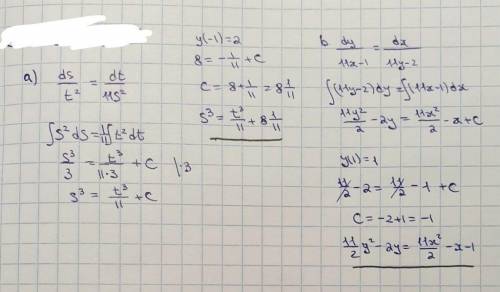 a) ds/t² = dt/11s²
∫s²ds = 1/11 ∫t²dt
s³/3 = t³/11·3 + C |·3
s³ = t³/11 + C
y(-1)=2
8 = -1/11 + C
C = 8+1/11 = 8 1/11
s³ = t³/11 + 8 1/11
b dy/11x-1 = dx/11y-2
∫(11y-2)dy = ∫(11x-1)dx
11y²/2 - 2y = 11x²/2 - x + C
y(1)=1
11/2 - 2 = 11/2 - 1 + C
C = -2+1 = -1
11/2 y² - 2y = 11x²/2 - x - 1